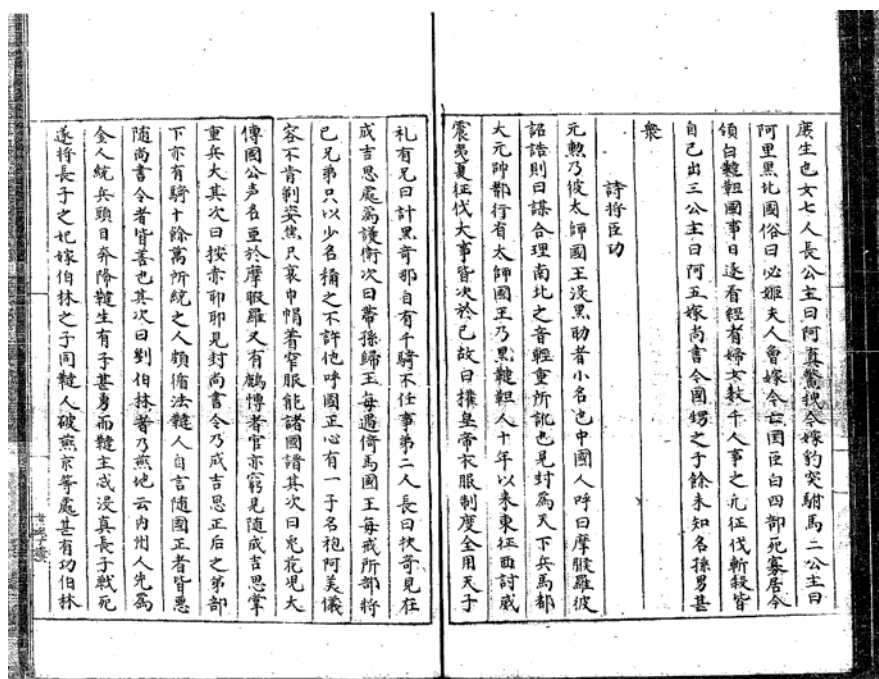 庻生也女七人長公主曰阿真鱉拽今嫁豹突駙馬二公主曰
阿里黑北國俗曰必姬夫人曾嫁今亡國臣白四部死寡居今
領白韃靼國事日逐看經有婦女数千人事之凢征伐斬殺皆
自己出三公主曰阿五嫁尚書令國甥之子餘未知名孫男甚
衆
諸将臣功
元勲乃彼太師國王没黒助者小名也中國人呼曰摩睺羅彼
詔誥則曰謀合理南北之音輕重所訛也見封為天下兵馬都
大元帥都行省太師國王乃黒韃靼人十年以来東征西討威
震夷夏征伐大事皆决於己故曰權皇帝衣服制度全用天子
礼有兄曰計里哥那自有千騎不任事弟二人長曰抹哥見在
成吉思處為護衛次曰帶孫歸王每遇侍焉國王每戒所部將
己兄弟只以少名稱之不許他呼國正心有一子名袍阿美儀
容不肯剃婆焦只裹巾帽着窄服能諸國語其次曰兎花児大
傅國公声名亞於摩睱羅又有鷓博者官亦窮見随成吉思掌
重兵大其次曰按赤耶耶見封尚書令乃成吉思正后之弟部
下亦有騎十餘萬所統之人頗循法韃人自言随國正者皆悪
随尚書令者皆善也其次曰劉伯林者乃燕地云内州人先為
金人統兵頭目奔降韃生有子甚勇而韃主忒没真長子戰死
遂将長子之妃嫁伯林之子同韃人破燕京等處甚有功伯林